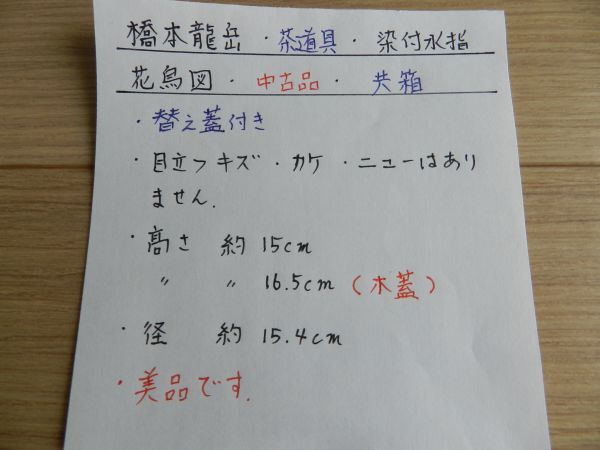 橋本龍岳・茶道具・染付水指
花鳥図・中古品・共箱
・替え蓋付き
・目立つキズ・カケ・ニューはあり
ません.
・高さ 約 15cm
〃 〃 16.5cm (木蓋)
・径 約 15.4cm
・美品です.